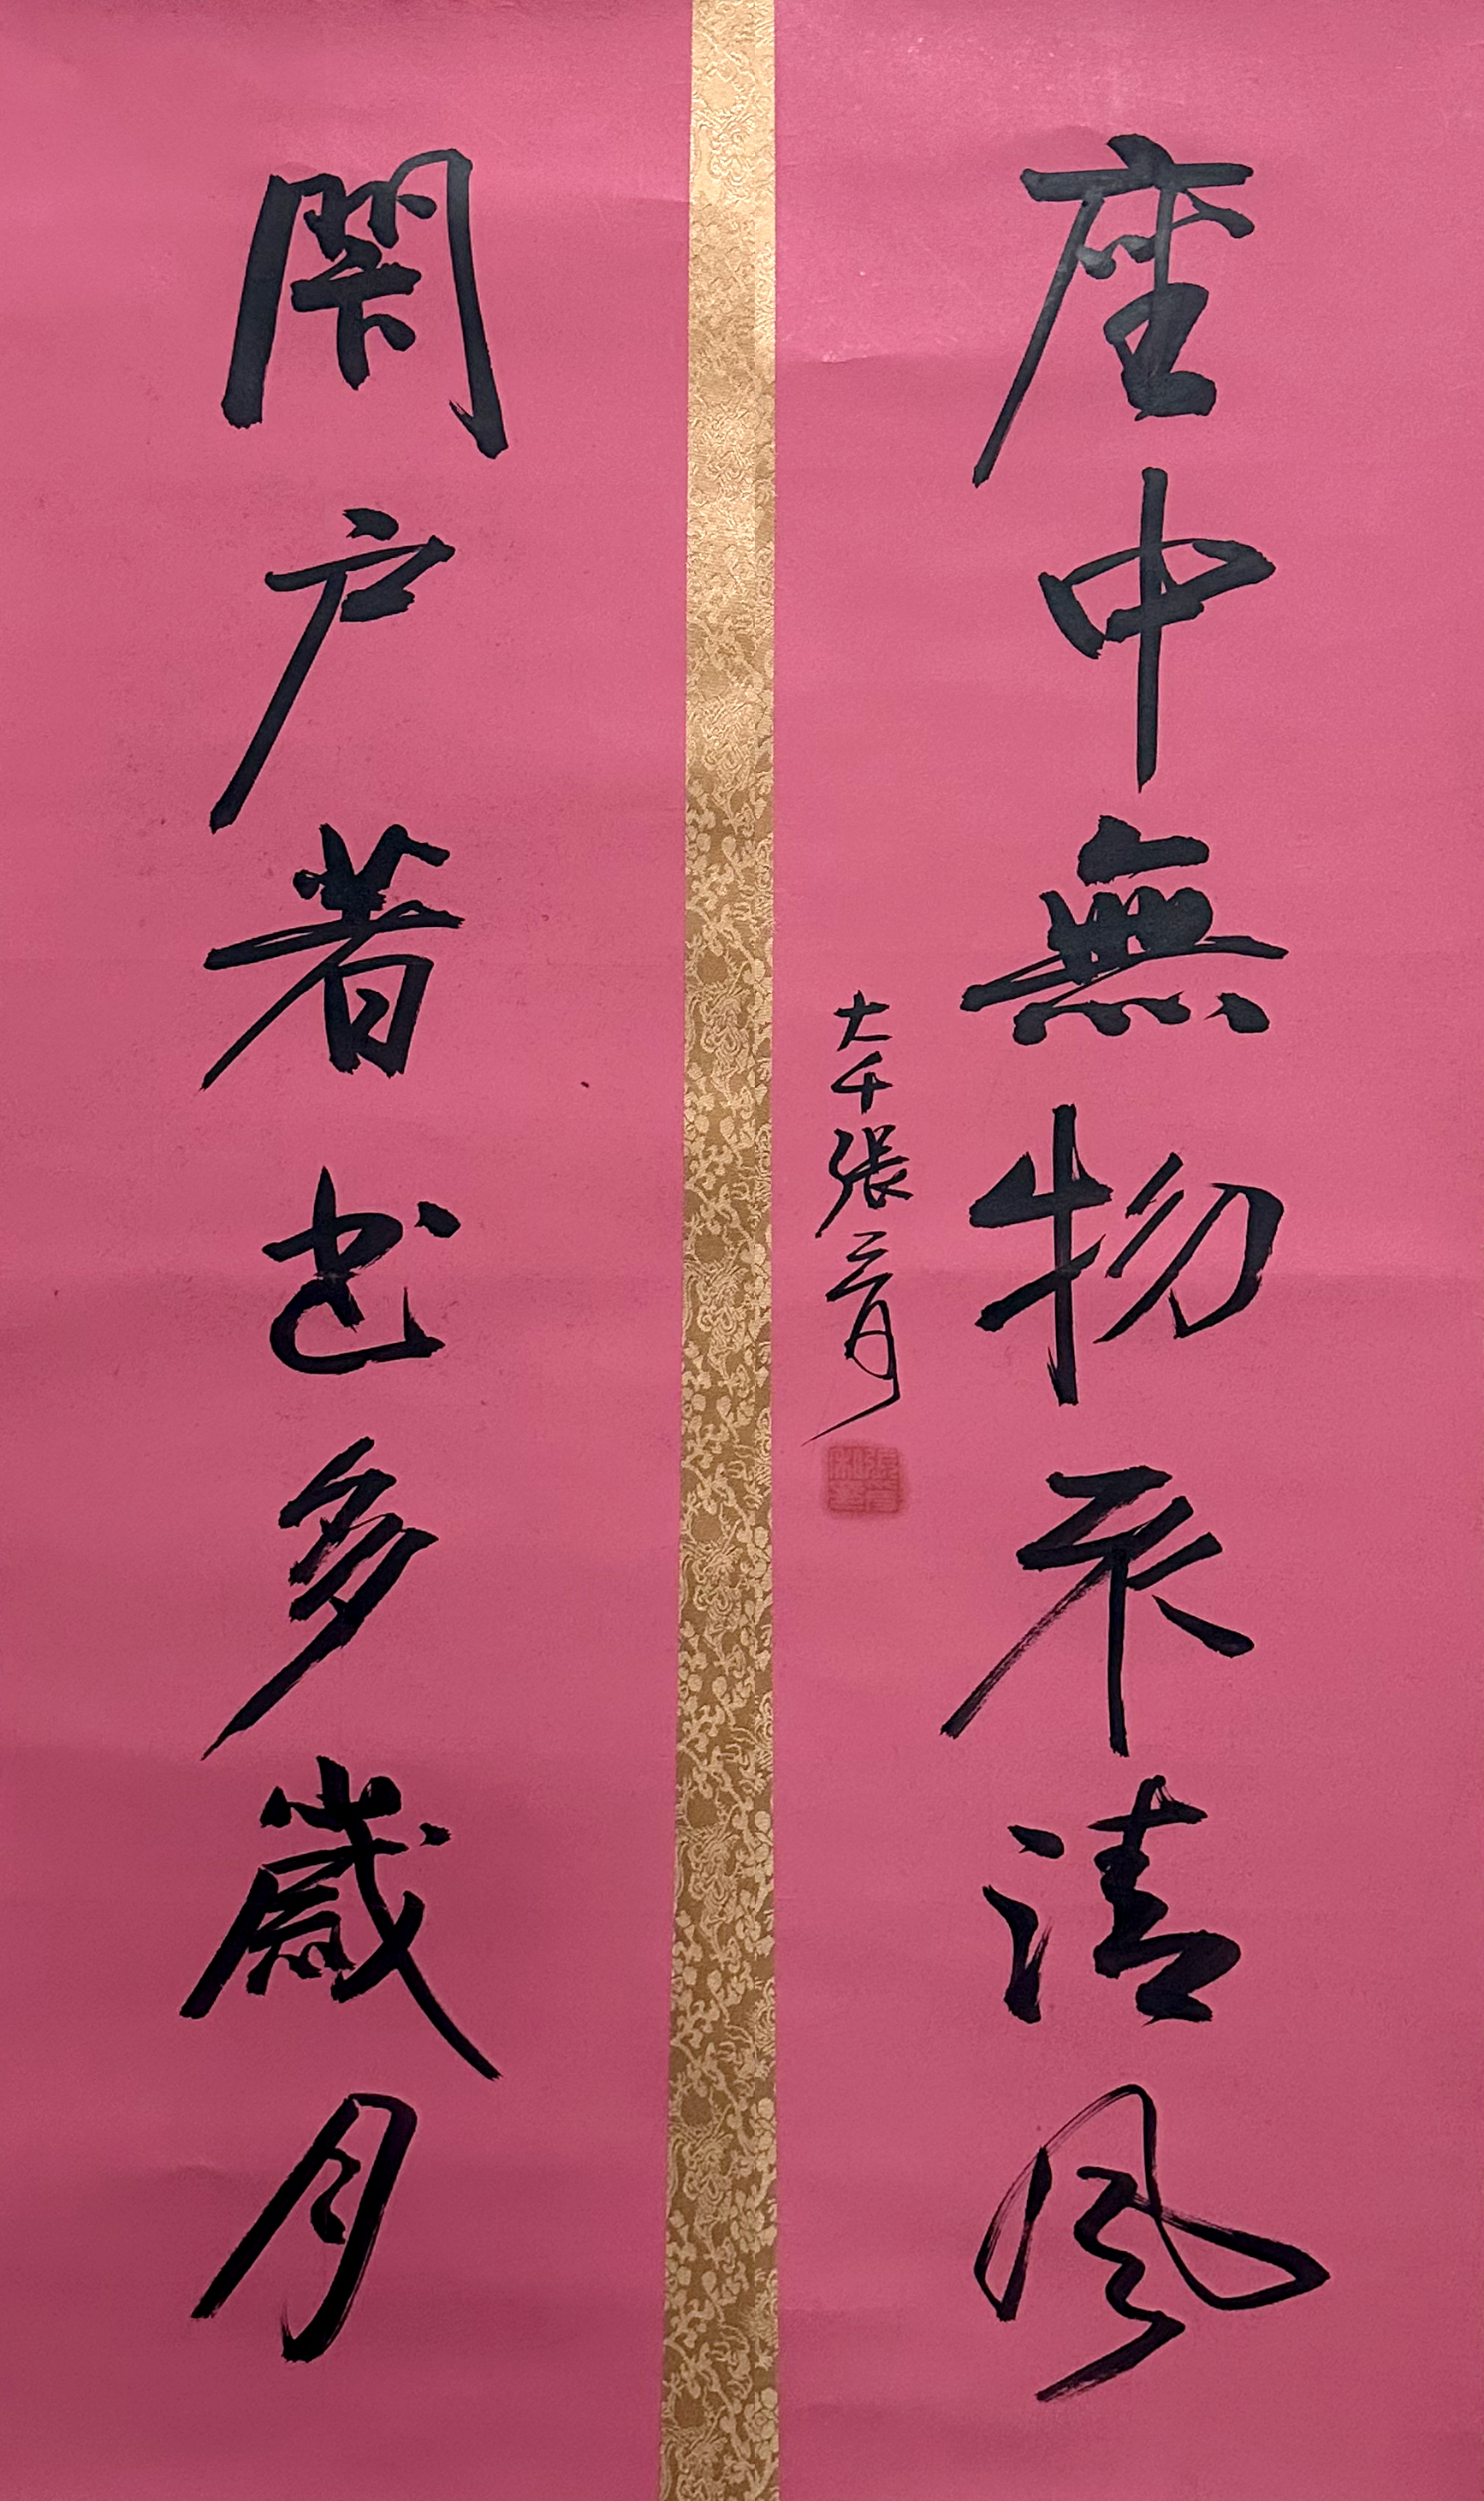 座中無物清風
大千張爰
閉户著书多歲月